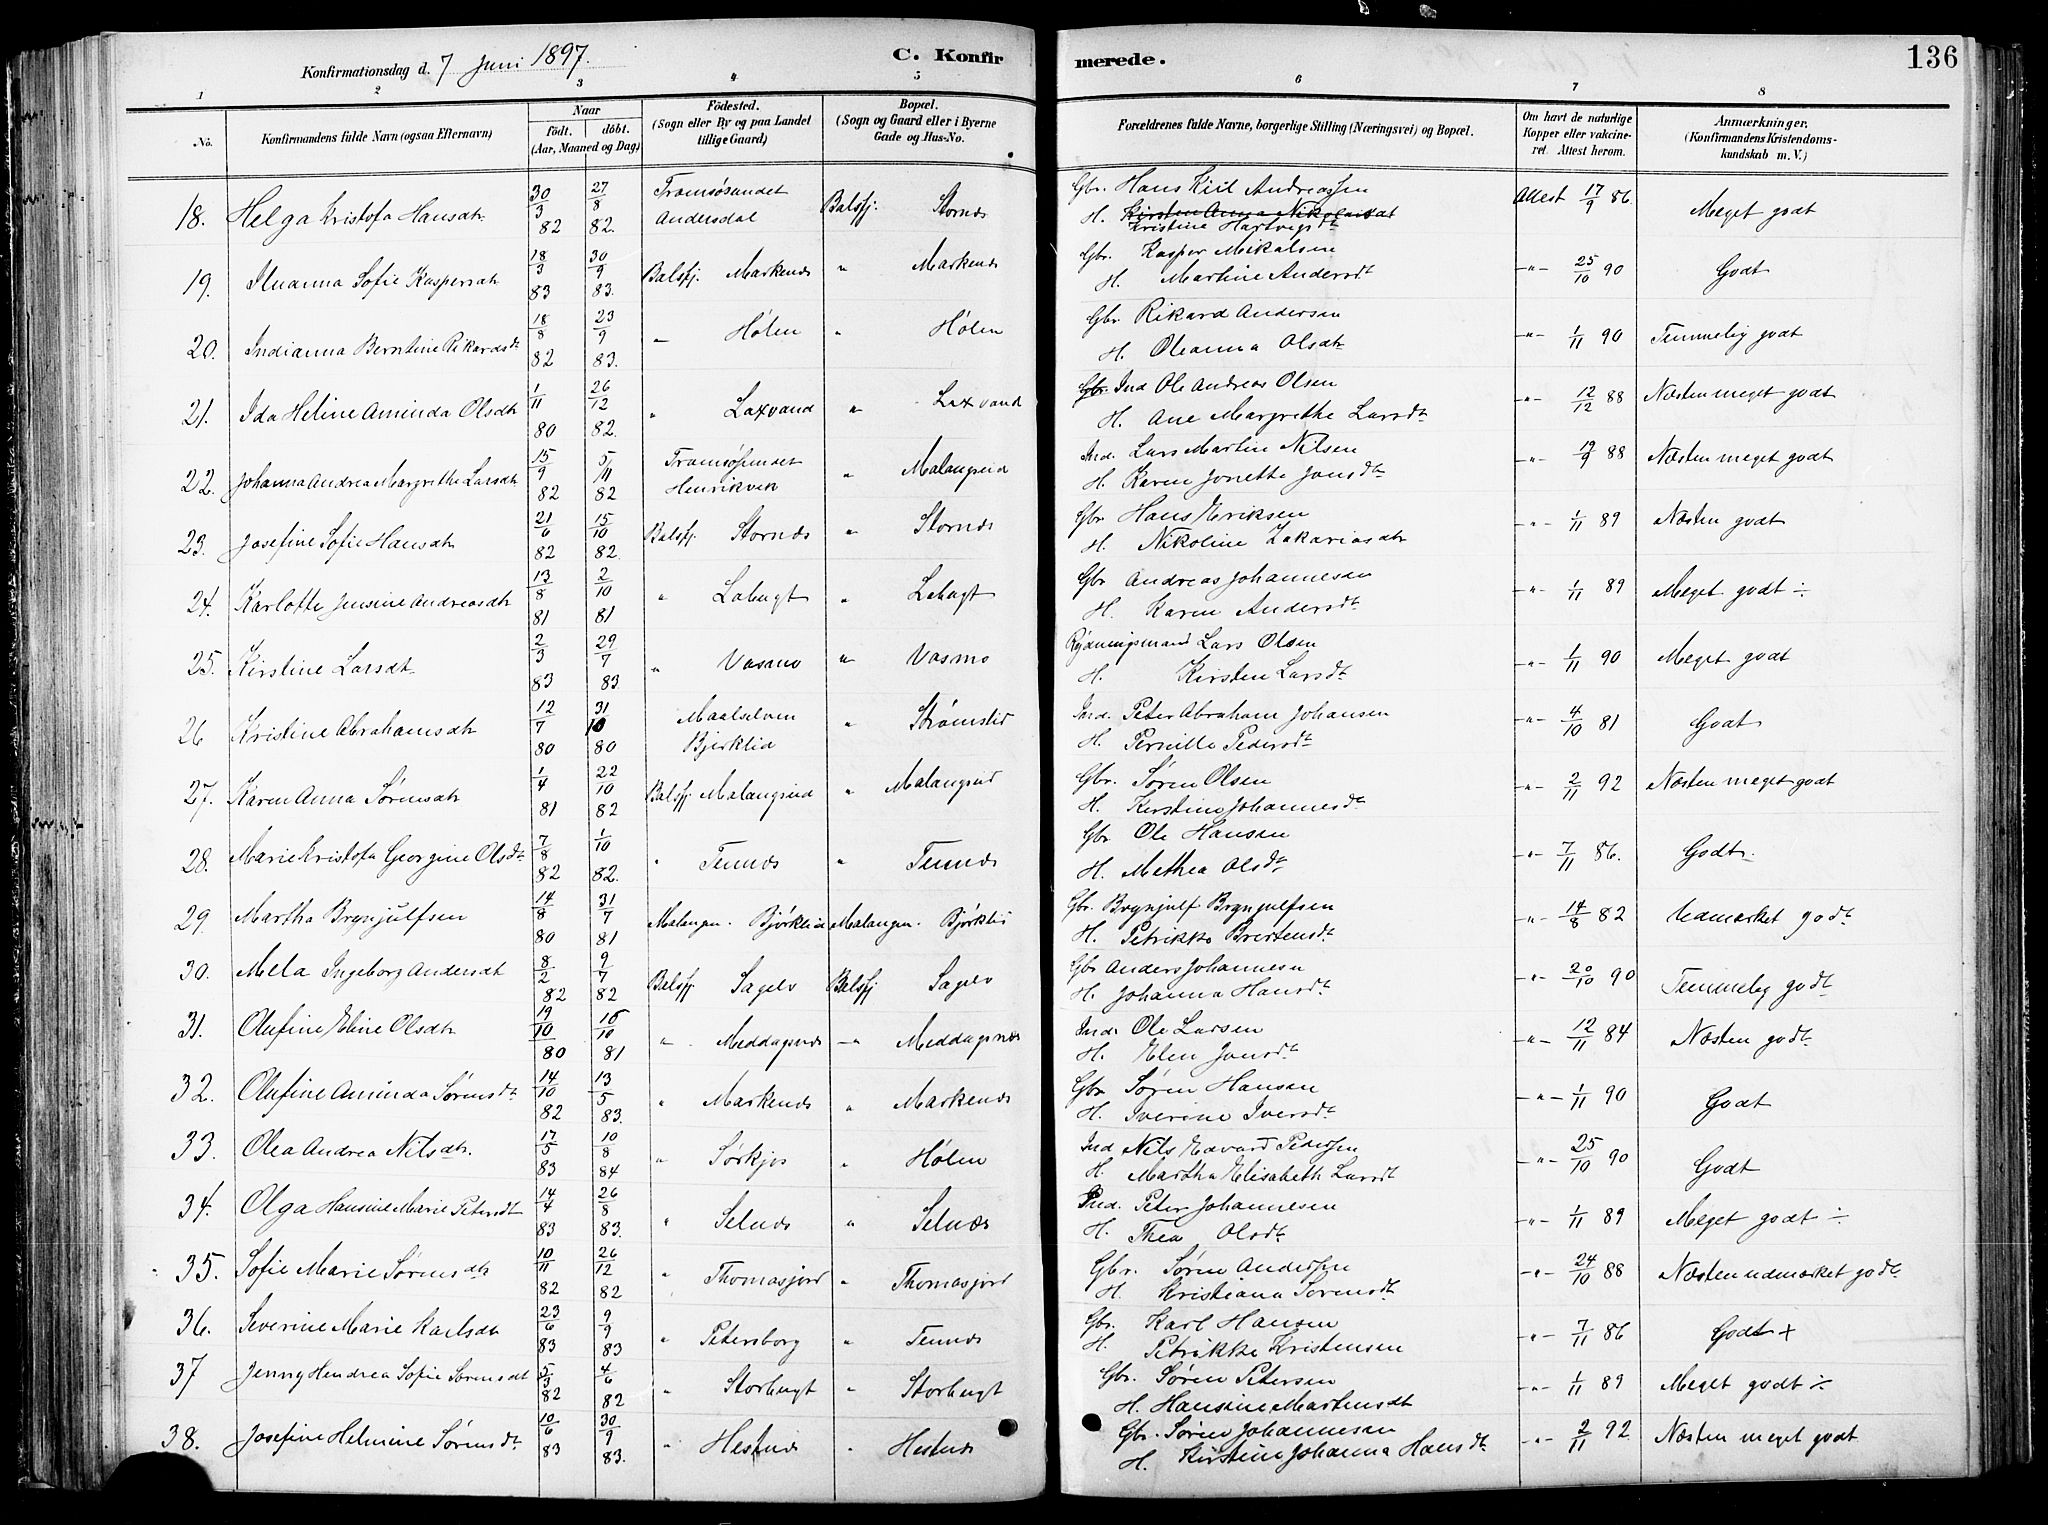 Konfirmationsdag d. 7 Juni 1897. C. Konfirmerede. 136
1 2 3 4 5 6 7 8
No. Konfirmandens fulde Navn (ogsaa Efternavn) Naar født. døbt. (Aar, Maaned og Dag) Fødested. (Sogn eller By og paa Landet tillige Gaard) Bopæl. (Sogn og Gaard eller i Byerne Gade og Hus-No. Forældrenes fulde Navne, borgerlige Stilling (Næringsvei) og Bopæl. Om havt de naturlige Kopper eller vaccineret. Attest herom. Anmærkninger. (Konfirmandens Kristendomskundskab m. V.)
18. Helga Kristofa Hansdtr 30/3 82 27/8 82. Tromsøsundet Andersdal Balsfj. Stornæs Gbr. Hans Kiil Andreassen Attest 17/9 86. Meget godt
H. Kirsten Anna Nikolaisdt
Kristine Hartvigsdt
19. Iluanna Sofie Kaspersdtr 18/3 83 30/9 83. Balsfj. Markenæs " Markenæs Gbr. Kasper Mikalsen -"- 25/10 90 Godt
H. Martine Andersdt
20. Indianna Berntine Rikardsdt 18/8 82 23/9 83. " Hølen " Hølen Gbr. Rikard Andersen -"- 1/11 90 Temmelig godt
H. Oleanna Olsdtr
21. Ida Heline Aminda Olsdtr 1/11 80 26/12 82. " Laxvand " Laxvand Gbr. Ind Ole Andreas Olsen -"- 12/12 88 Næsten meget godt
H. Ane Margrethe Larsdt
22. Johanna Andrea Margrethe Larsdt 15/9 82 5/11 82 Tromsøsundet Henrikvik " Malangseid Ind. Lars Martin Nilsen -"- 19/9 88 Næsten meget godt
H. Karen Jonette Jonsdtr
23. Josefine Sofie Hansdtr 21/6 82 15/10 82. Balsfj. Stornæs " Stornæs Gbr Hans Eriksen -"- 1/11 89 Næsten godt
H. Nikoline Zakariasdtr
24. Karlotte Jensine Andreasdtr 13/8 81 2/10 81 " Labugt " Labugt Gbr Andreas Johannesen -"- 1/11 89 Meget godt ÷
H. Karen Andersdt
25. Kirstine Larsdt. 2/3 83 29/7 83. " Vasmo " Vasmo Rydningsmand Lars Olsen -"- 1/11 90 Meget godt
H. Kirsten Larsdt
26 Kristine Abrahamsdtr 12/7 80 31/10 80 Maalselven Bjerklid " Strømslid Ind. Peter Abraham Johansen -"- 4/10 81 Godt
H. Pernille Pedersdt
27. Karen Anna Sørensdtr 1/4 81 22/10 82 Balsfj Malangseid " Malangseid Gbr. Søren Olsen -"- 2/11 92 Næsten meget godt
H. Kirstine Johannesdt
28. Marie Kristofa Georgine Olsdt 7/8 82 1/10 82. " Tennæs " Tennæs Gbr. Ole Hansen -"- 7/11 86. Godt.
H. Methea Olsdt
29 Martha Brynjulfsen 14/8 80 31/7 81 Malangen. Bjørklid Malangen. Bjørklid Gbr. Brynjulf Brynjulfsen -"- 14/8 82 Udmærket godt
H. Petrikke Brertensdt.
30. Mela Ingeborg Andersdt 8/2 82 9/7 82 Balsfj. Sagelv Balsfj Sagelv Gbr Anders Johannesen -"- 20/10 90 Temmelig godt
H. Johanna Hansdt.
31. Olufine Eline Olsdtr 19/10 80 16/10 81 " Meddagsnæs " Meddagsnæs Ind. Ole Larsen -"- 12/11 84 Næsten godt
H. Elen Jonsdt
32. Olufine Aminda Sørensdt 14/10 82 13/5 83. " Markenæs " Markenæs Gbr Søren Hansen -"- 1/11 90 Godt
H. Iverine Iversdt
33. Olea Andrea Nilsdtr. 17/5 83 10/8 84 " Sørkjos " Hølen Ind Nils Edvard Pedersen -"- 25/10 90 Godt
H. Martha Elisabeth Larsdt
34. Olga Hansine Marie Petersdt 14/4 83 26/8 83. " Selnæs " Selnæs Ind. Peter Johannesen -"- 1/11 89 Meget godt ÷
H. Thea Olsdt
35. Sofie Marie Sørensdtr 10/11 82 26/12 82 " Thomasjord " Thomasjord Gbr. Søren Andersen -"- 24/10 88 Næsten udmærket godt
H. Kristiana Sørensdt
36. Severine Marie Karlsdt 23/6 83 9/9 83 " Petersborg " Tennæs Gbr. Karl Hansen -"- 7/11 86 Godt +
H. Petrikke Kristensen
37 Jenny Hendrea Sofie Sørensdt 5/3 82 4/6 82 " Storbugt " Storbugt Gbr. Søren Petersen -"- 1/11 89 Meget godt ÷
H. Hansine Martensdt
38. Josefine Helmine Sørensdt. 10/6 83 30/9 83. " Hestnæs " Hestnæs Gbr. Søren Johannesen -"- 2/11 92 Næsten meget godt
H. Kirstine Johanna Hansdt